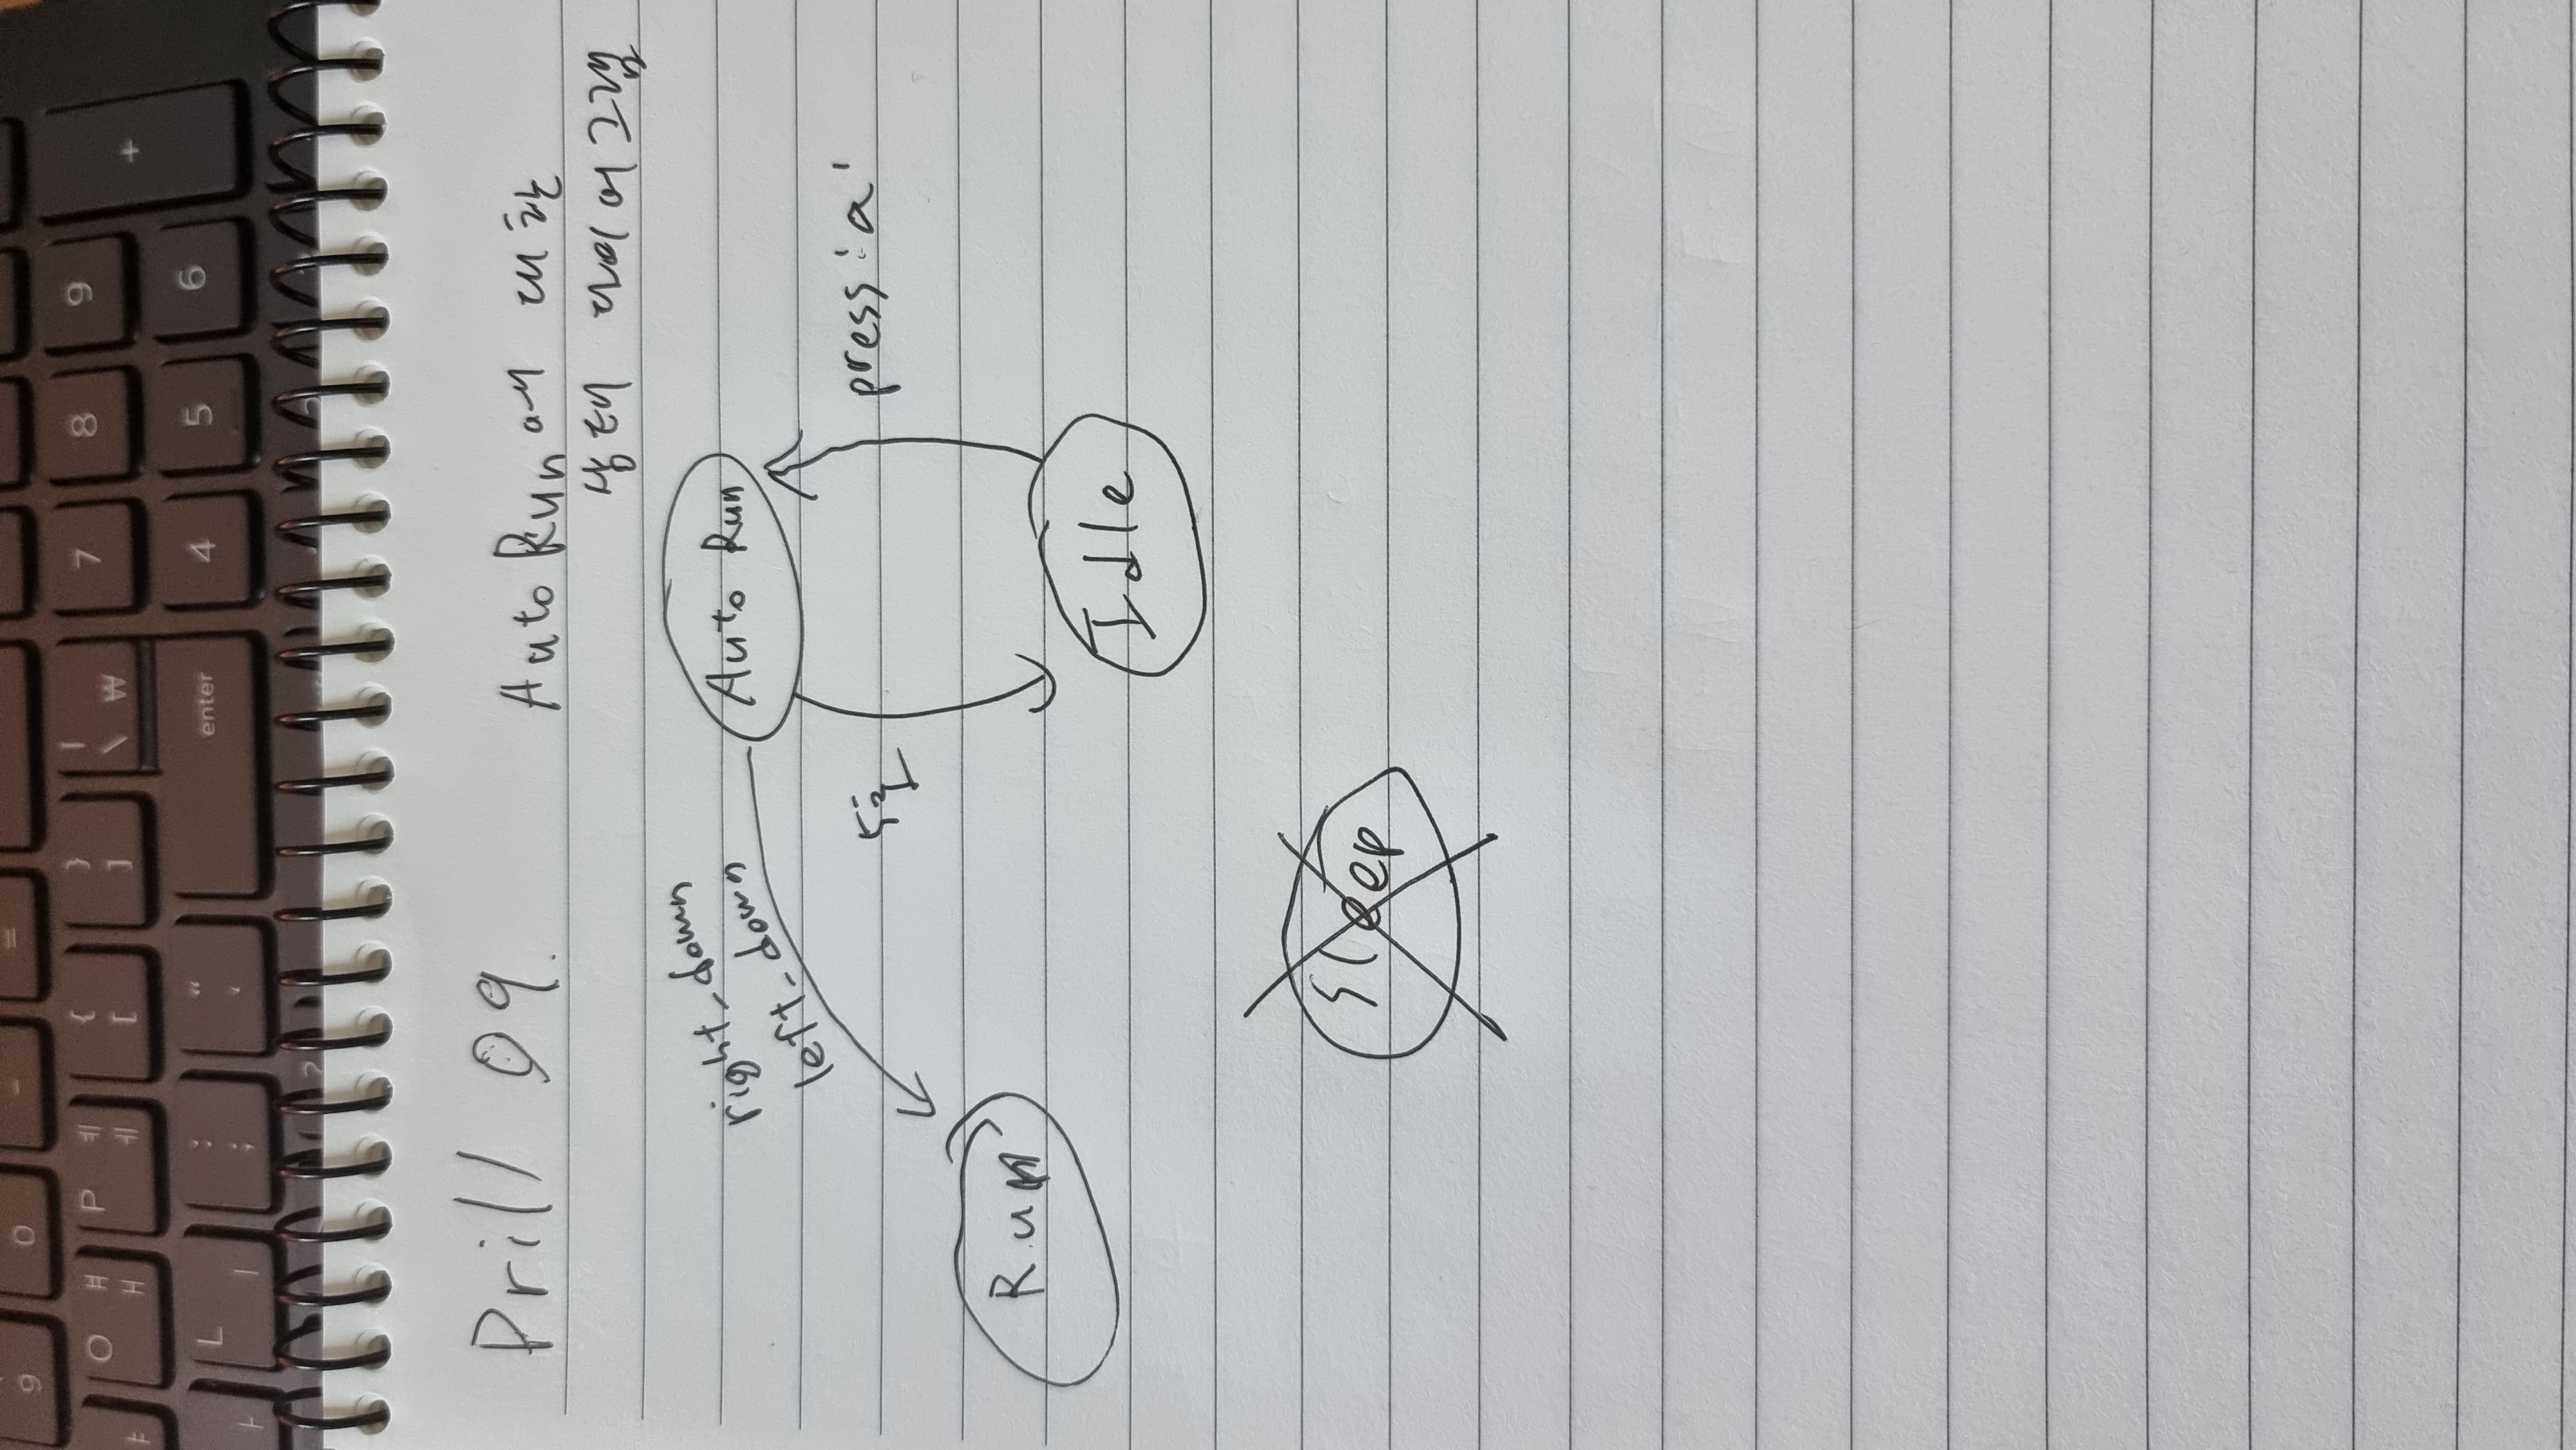 9 0 - =
O ㅒ ㅐ P ㅖ ㅔ { [ } ] | \ ₩ 7 8 9 +
L ㅣ : ; “ ‘ enter 4 5 6
Drill 09.
Auto Run에 대한
상태 다이어그램
right_down
left_down
Auto Run
5초
press 'a'
Run
Idle
Sleep